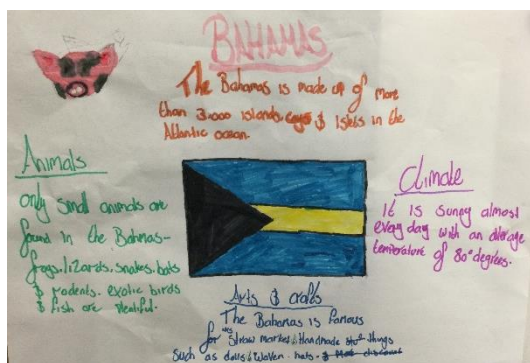 BAHAMAS
The Bahamas is made up of more
than 3.000 islands cays & Islets in the
Atlantic ocean.
Animals
only small animals are
found in the Bahmas-
frogs.lizards.snakes.bats
& rodents. exotic birds
& fish are plentiful.
Climate
it is suney almost
every day with an average
temperature of 80° degrees.
Arts & crafts
The Bahamas is famous
for "Straw market" Handmade things
Such as dolls & woven hats.